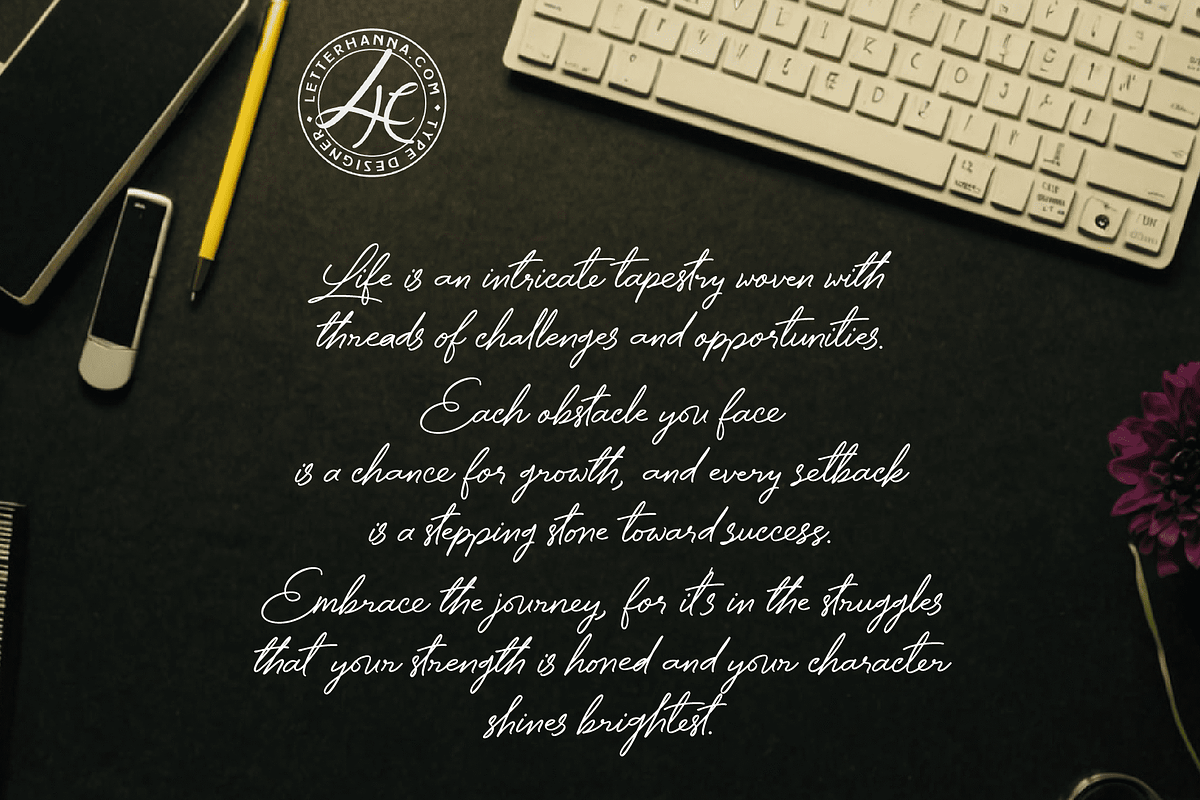 LETTERHANNA.COM • TYPE DESIGNER •
LH
Life is an intricate tapestry woven with
threads of challenges and opportunities.
Each obstacle you face
is a chance for growth, and every setback
is a stepping stone toward success.
Embrace the journey, for it's in the struggles
that your strength is honed and your character
shines brightest.